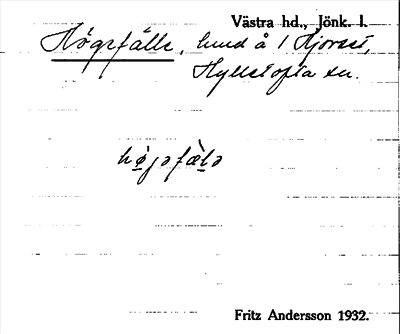 Västra hd., Jönk. l.
Högefälle, lund å 1 Hjorset,
Hyllstofta sn.
højəfælə
Fritz Andersson 1932.